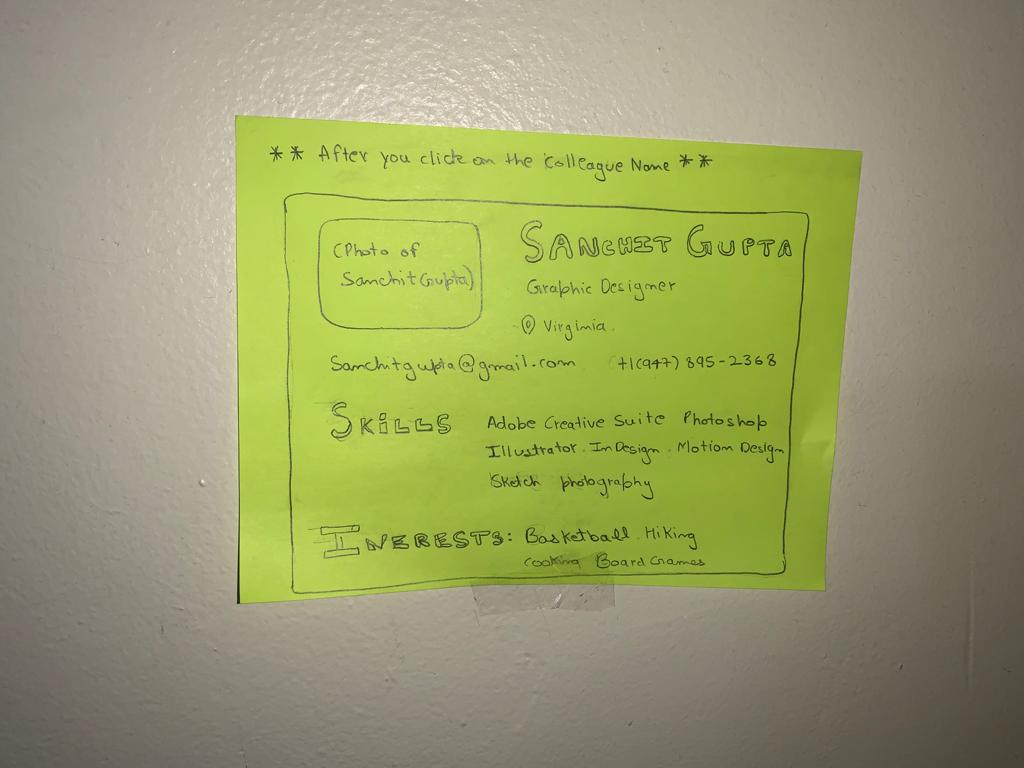 ** After you click on the Colleague Name **
(Photo of
Sanchit Gupta)
SANCHIT GUPTA
Graphic Designer
Virginia.
Sanchitgupta@gmail.com +1(947) 895-2368
SKILLS Adobe Creative Suite Photoshop
Illustrator. InDesign. Motion Design
Sketch photography
INERESTS: Basketball. Hiking
cooking Board Games